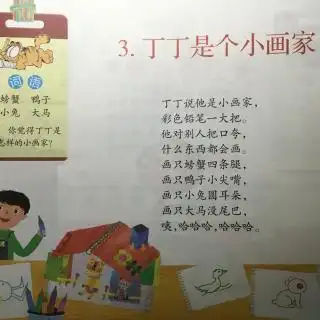 3. 丁丁是个小画家
词语
螃蟹 鸭子
小兔 大马
你觉得丁丁是
怎样的小画家?
丁丁说他是小画家,
彩色铅笔一大把。
他对别人把口夸,
什么东西都会画。
画只螃蟹四条腿,
画只鸭子小尖嘴,
画只小兔圆耳朵,
画只大马没尾巴,
咦,哈哈哈,哈哈哈。